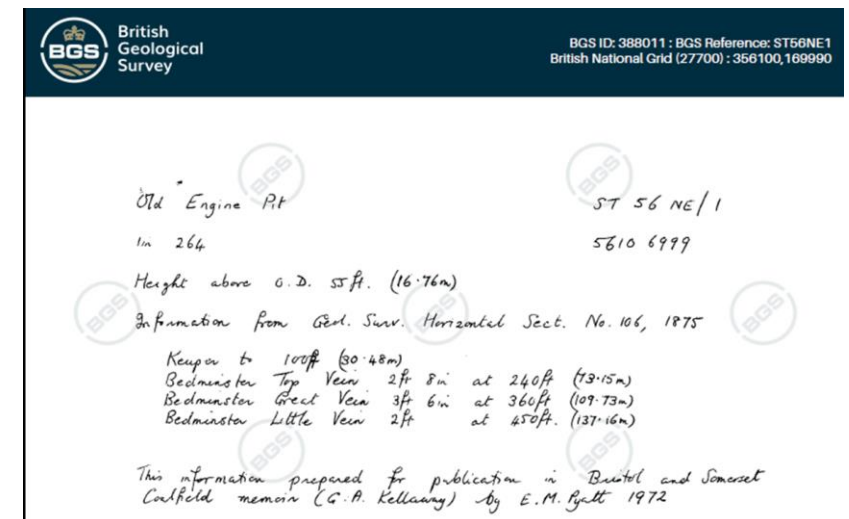 BGS
British
Geological
Survey
BGS ID: 388011 : BGS Reference: ST56NE1
British National Grid (27700) : 356100,169990
Old Engine Pit
ST 56 NE/1
1in 264
5610 6999
Height above O.D. 55ft. (16.76m)
Information from Geol. Surv. Horizontal Sect. No. 106, 1875
Keuper to 100ft (30.48m)
Bedminster Top Vein 2ft 8in at 240ft (73.15m)
Bedminster Great Vein 3ft 6in at 360ft (109.73m)
Bedminster Little Vein 2ft at 450ft. (137.16m)
This information prepared for publication in Bristol and Somerset
Coalfield memoir (G.A. Kellaway) by E.M. Pyatt 1972
BGS
BGS
BGS
BGS
BGS
BGS
BGS